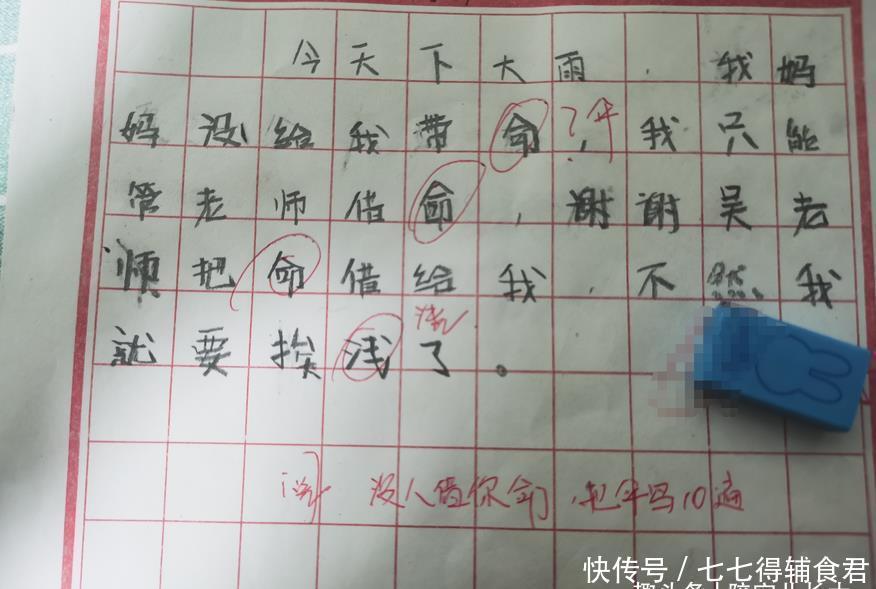 今天下大雨,我妈
妈没给我带命?伞,我只能
管老师借命,谢谢吴老
师把命借给我,不然我
浇
就要挨浅了。
没人借你命,把伞写10遍
快传号/七七得辅食君